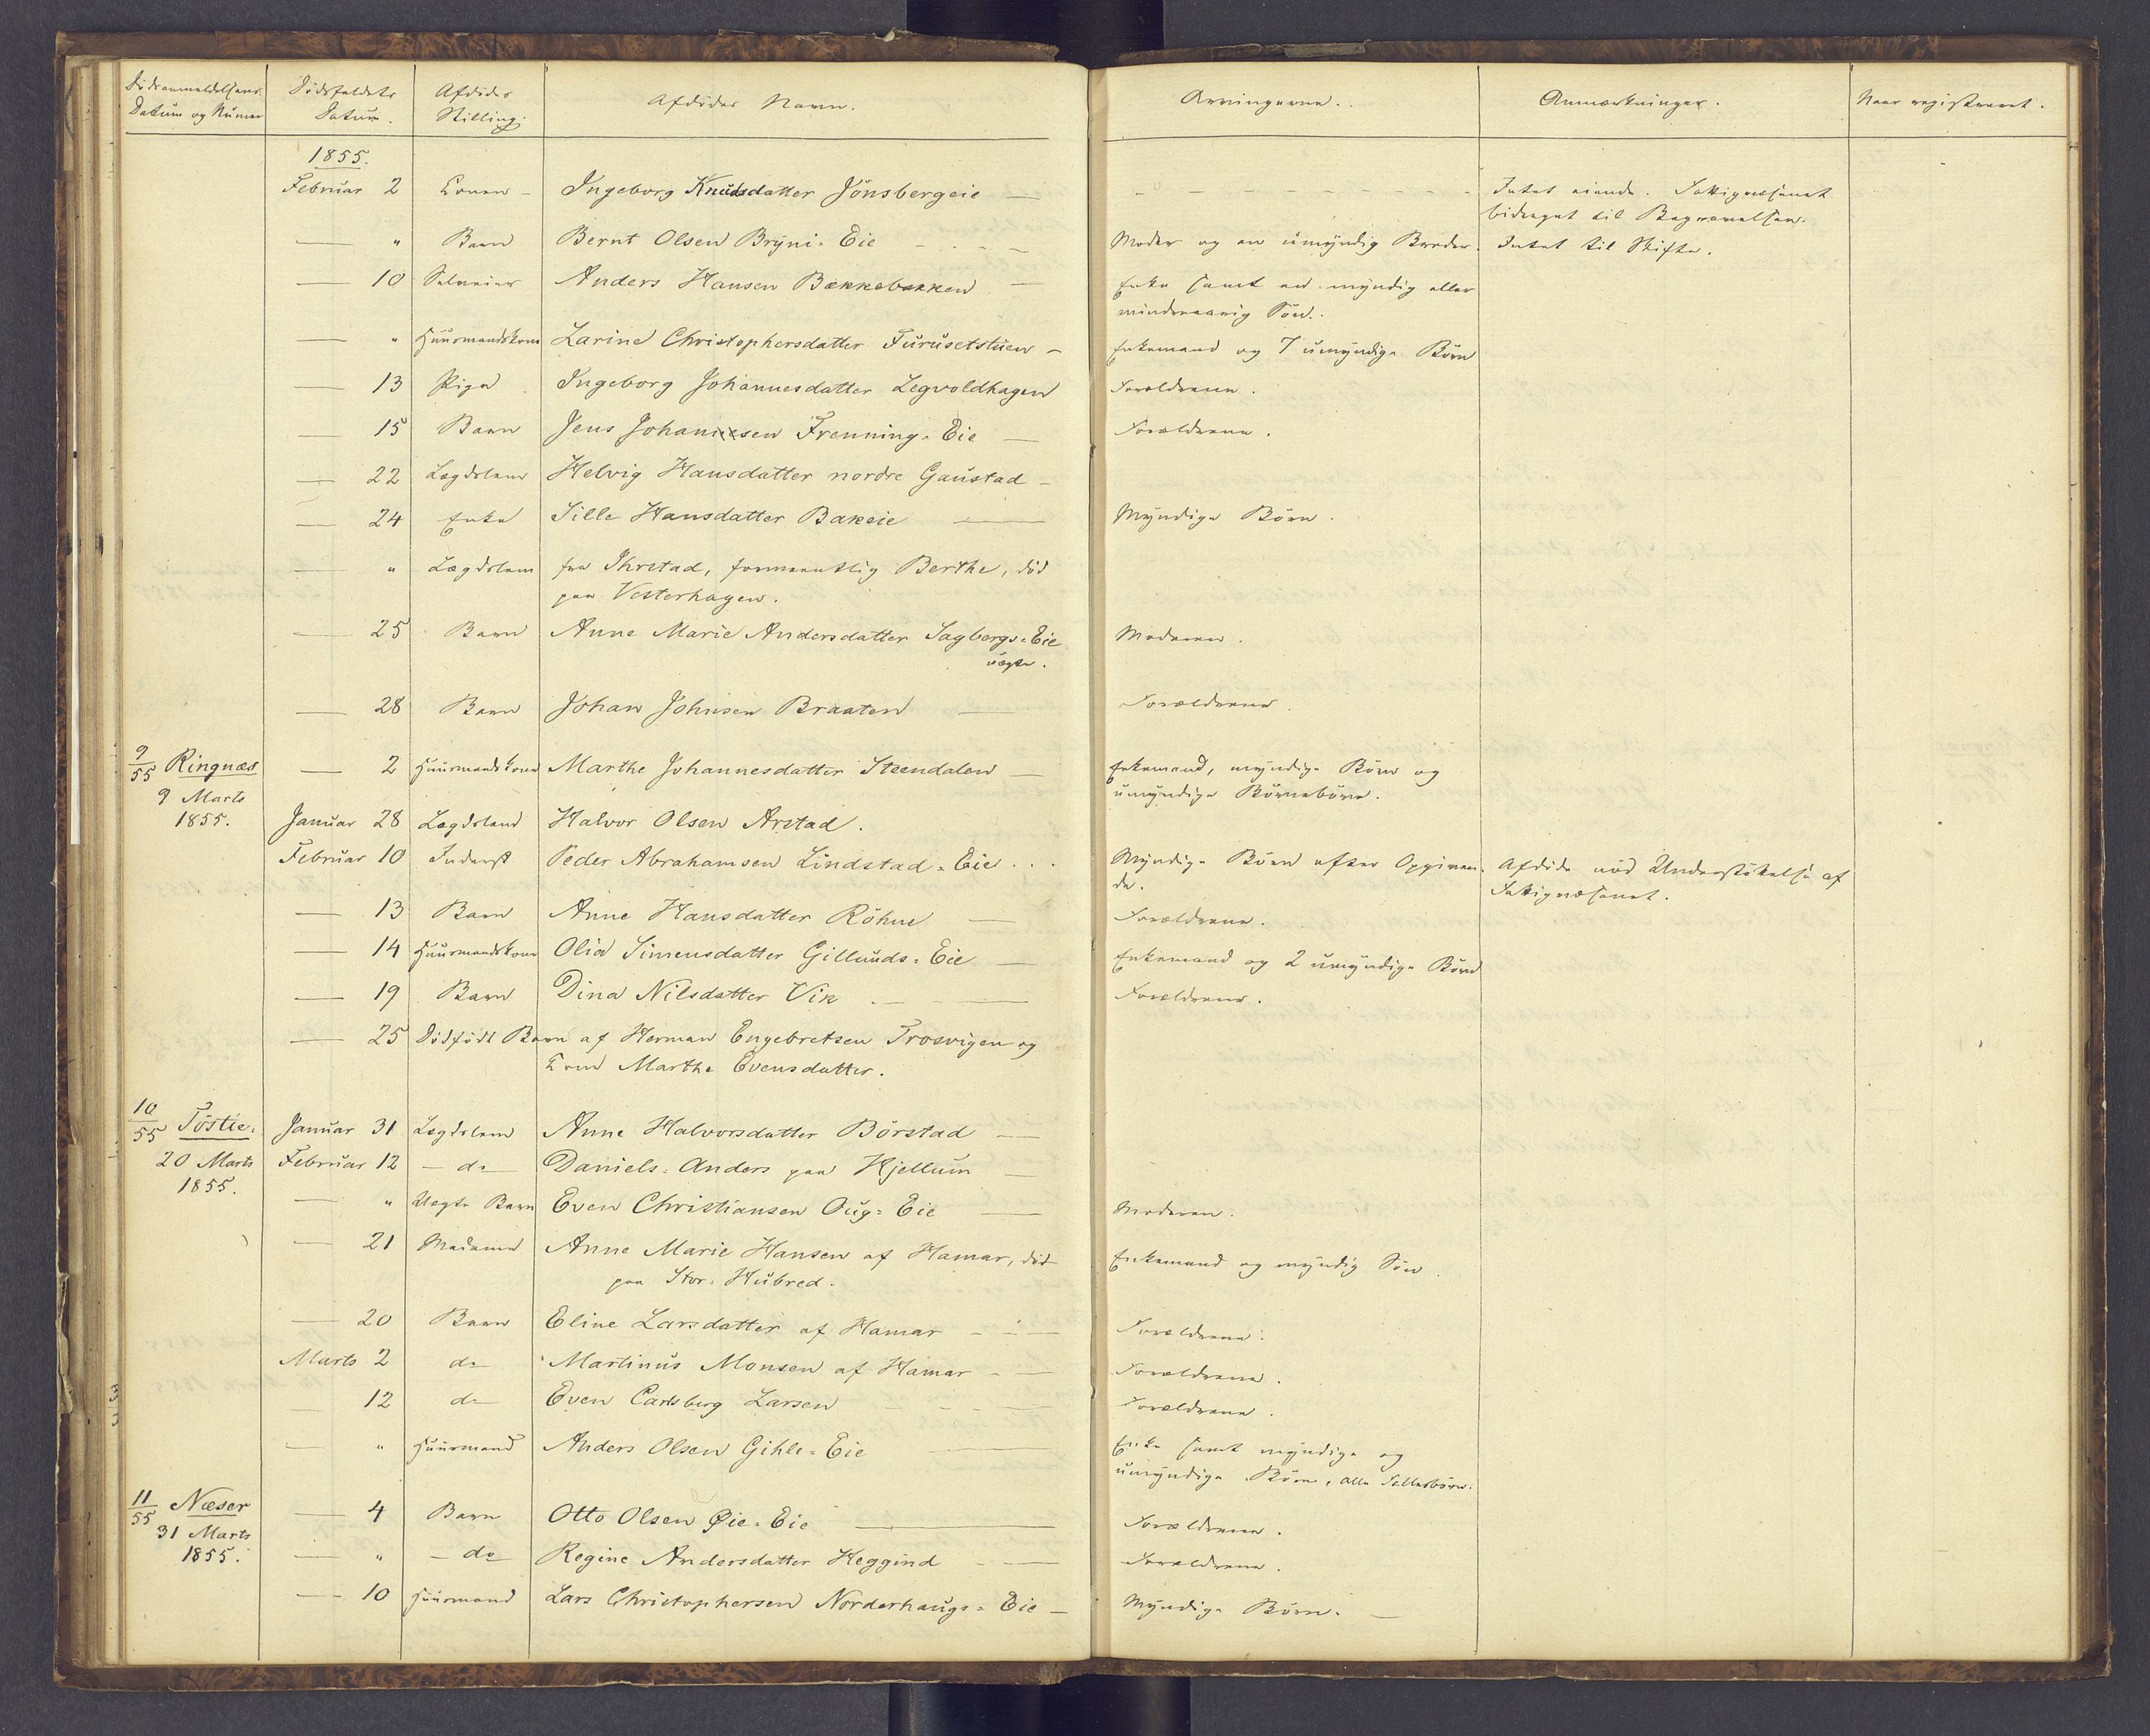 Dødsanmeldelsens Datum og Numer
Dødsfaldets Datum.
Afdødes Stilling.
Afdødes Navn.
Arvingerne.
Anmærkninger.
Naar registreret.
1855.
Februar 2 Konen - Ingeborg Knudsdatter Jönsbergeie — Intet eiende. Fattigvæsenet
bidraget til Begravelsen.
— " Barn Bernt Olsen Bryni-Eie - - - Moder og en umyndig Broder. Intet til Skifte.
— 10 Selveier Anders Hansen Bækkebækken — Enke samt en myndig eller
mindreaarig Sön.
— " Huusmandskone Larine Christophersdatter Furusetstuen - Enkemand og 7 umyndige Börn
— 13 Pige Ingeborg Johannesdatter Legvoldhagen Forældrene.
— 15 Barn Jens Johannesen Frenning-Eie — Forældrene.
— 22 Lægdslem Helvig Hansdatter nordre Gaustad -
— 24 Enke Sille Hansdatter Bakeie — Myndige Börn.
— " Lægdslem fra Ihrstad, formentlig Berthe, död
paa Vesterhagen.
— 25 Barn Anne Marie Andersdatter Sagbergs-Eie Moderen.
uægte.
— 28 Barn Johan Johnsen Braaten — Forældrene.
9/55 Ringnæs — 2 Huusmandskone Marthe Johannesdatter Steendalen — Enkemand, myndige Börn og
9 Marts umyndige Börnebörn.
1855. Januar 28 Lægdslem Halvor Olsen Arstad.
Februar 10 Inderst Peder Abrahamsen Lindstad-Eie . . . Myndige Börn efter Opgiven- Afdöde nöd Understöttelse af
de. Fattigvæsenet.
— 13 Barn Anne Hansdatter Röhne — Forældrene.
— 14 Huusmandskone Olia Simensdatter Gillunds-Eie — Enkemand og 2 umyndige Börn
— 19 Barn Dina Nilsdatter Vik - — Forældrene.
— 25 Dödfödt Barn af Herman Engebretsen Trosvigen og
Kone Marthe Evensdatter.
10/55 Töstie. Januar 31 Lægdslem Anne Halvorsdatter Börstad —
20 Marts Februar 12 - do - Daniels-Anders paa Hjellum —
1855. — " Uægte Barn Even Christiansen Aug-Eie — Moderen.
— 21 Madame Anne Marie Hansen af Hamar, död Enkemand og myndig Sön
paa Stor-Hubred.
— 20 Barn Eline Larsdatter af Hamar - - — Forældrene.
Marts 2 do Martinus Monsen af Hamar - — Forældrene.
— 12 do Even Carlsberg Larsen - - — Forældrene.
— " Huusmand Anders Olsen Gihle-Eie — Enke samt myndige og
umyndige Börn, alle Fællesbörn.
11/55 Næser — 4 Barn Otto Olsen Øie-Eie — Forældrene.
31 Marts
1855. — " - do Regine Andersdatter Heggind - — Forældrene.
— 10 Huusmand Lars Christophersen Norderhaugs-Eie — Myndige Börn. —